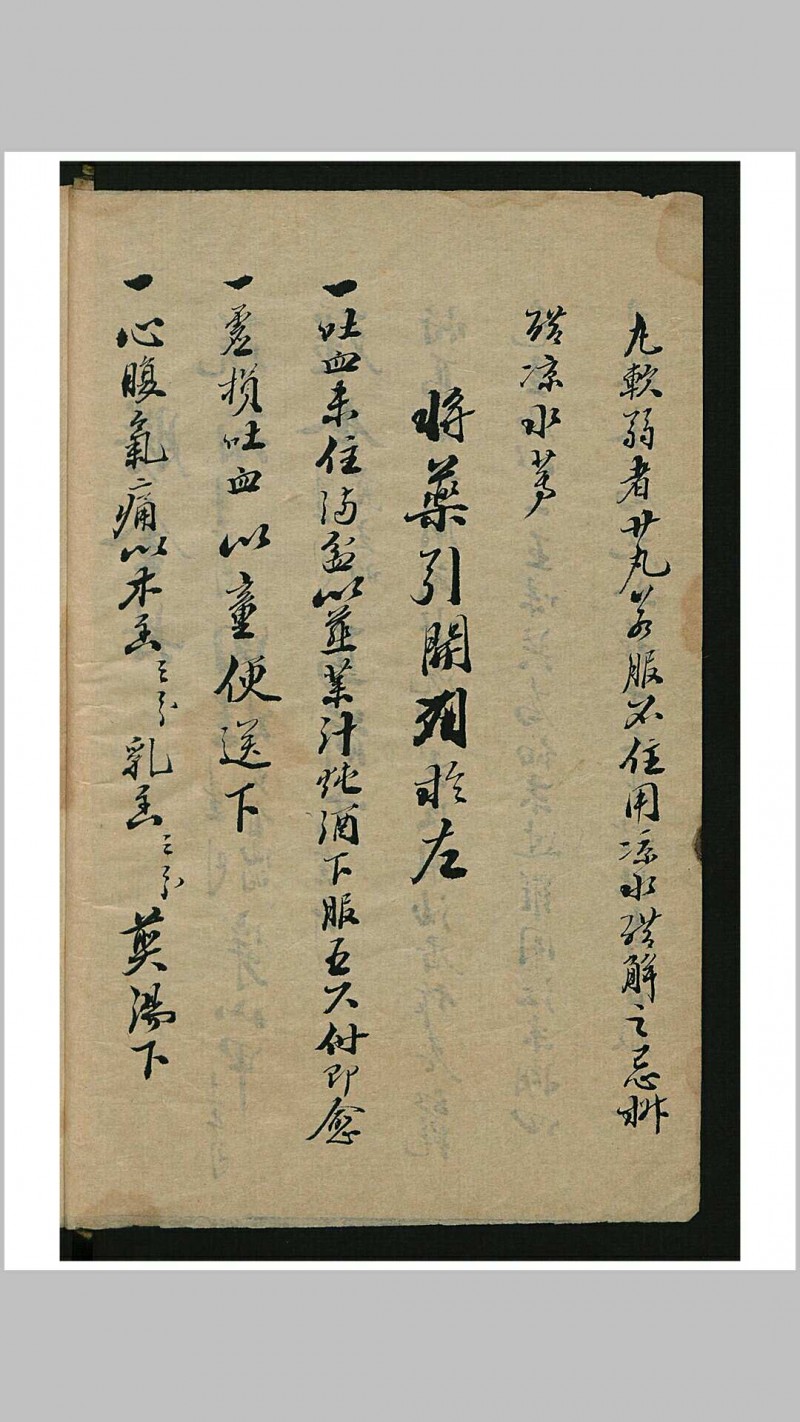 丸軟弱者廿丸若服不住用凉水醋解之忌
醋凉水等
將藥引開列於左
一吐血未住滿盆以韮葉汁炖酒下服五六付即愈
一虛損吐血以童便送下
一心腹氣痛以木香三分乳香三分煎湯下